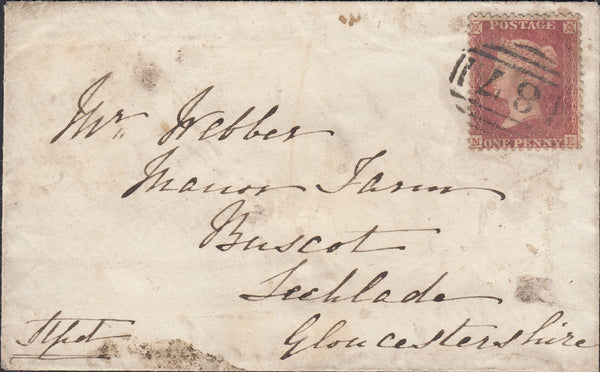 POSTAGE
ONE PENNY
Mr. Webber
Manor Farm
Buscot
Lechlade
Gloucestershire